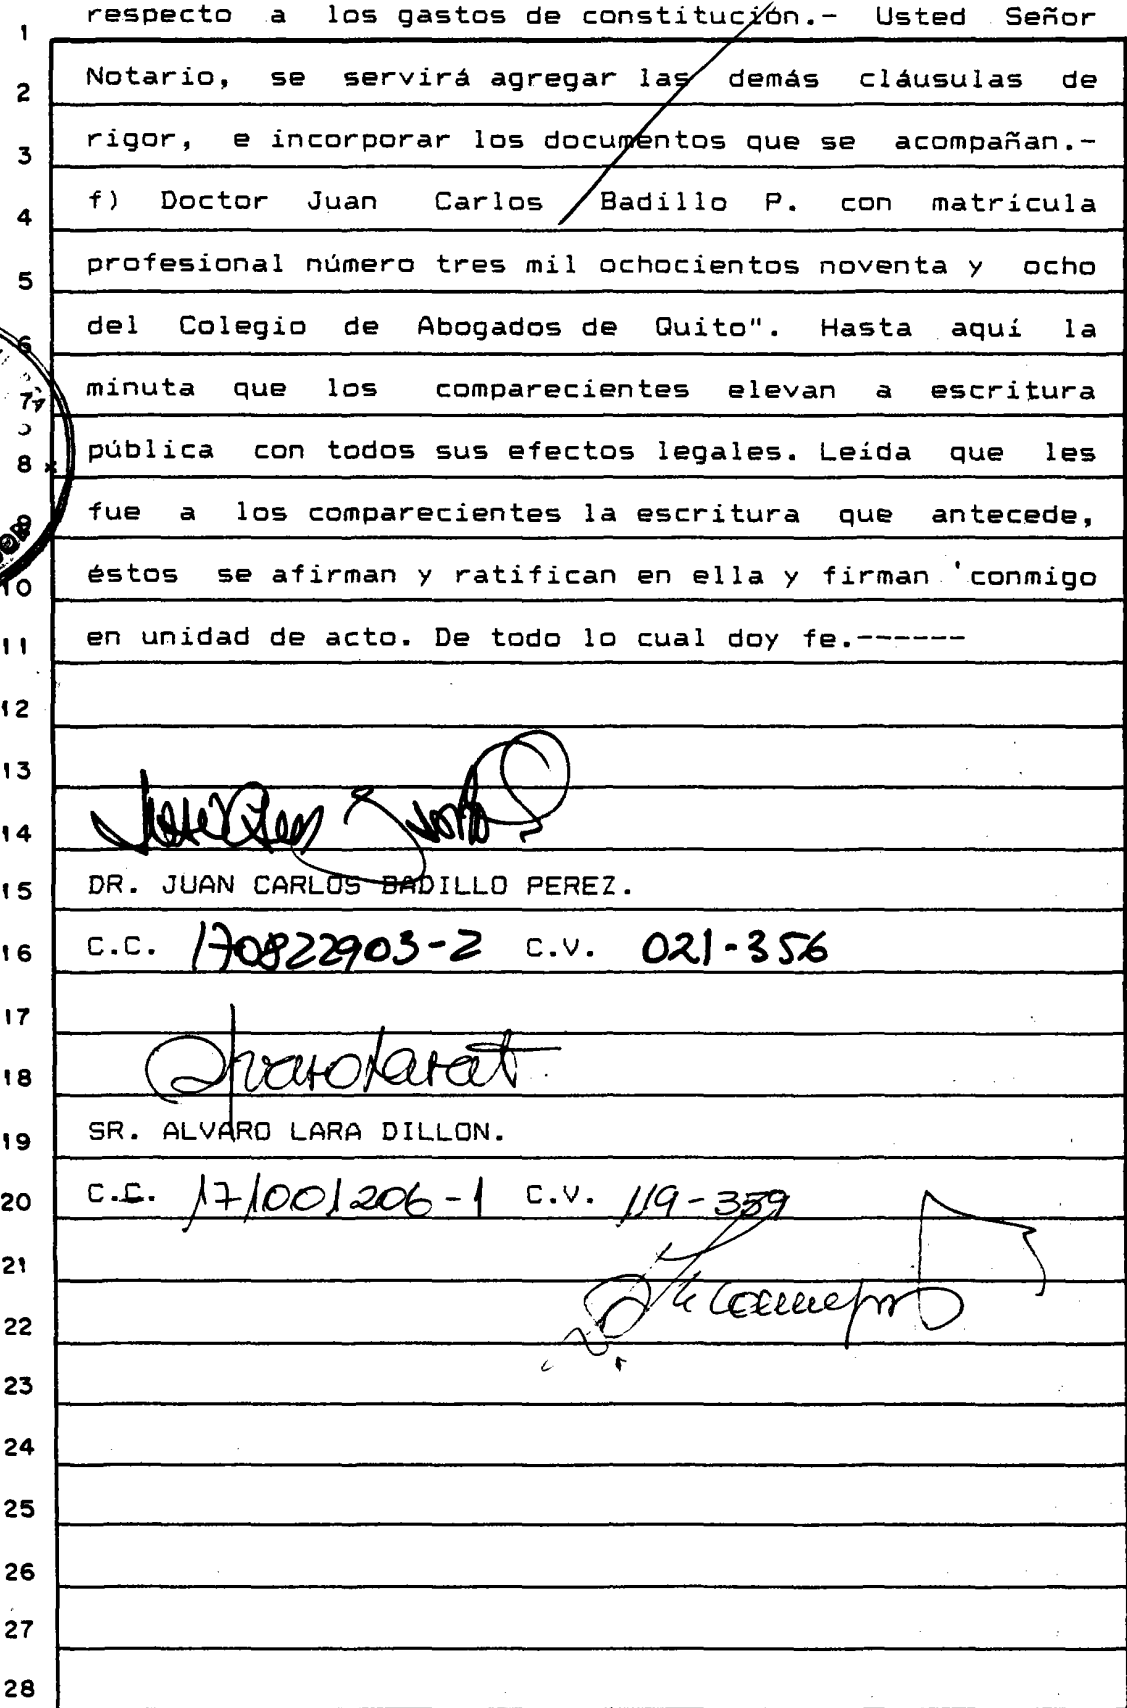 1 respecto a los gastos de constitución.- Usted Señor
2 Notario, se servirá agregar las demás cláusulas de
3 rigor, e incorporar los documentos que se acompañan.-
4 f) Doctor Juan Carlos Badillo P. con matrícula
5 profesional número tres mil ochocientos noventa y ocho
6 del Colegio de Abogados de Quito". Hasta aquí la
7 minuta que los comparecientes elevan a escritura
8 pública con todos sus efectos legales. Leída que les
9 fue a los comparecientes la escritura que antecede,
10 éstos se afirman y ratifican en ella y firman conmigo
11 en unidad de acto. De todo lo cual doy fe.------
12
13
14
15 DR. JUAN CARLOS BADILLO PEREZ.
16 C.C. 170822903-2 C.V. 021-356
17
18
19 SR. ALVARO LARA DILLON.
20 C.C. 171001206-1 C.V. 119-339
21
22
23
24
25
26
27
28